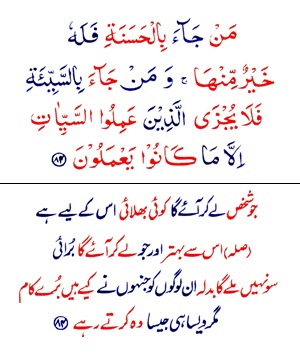 مَنْ جَآءَ بِالْحَسَنَةِ فَلَهٗ
خَيْرٌ مِّنْهَا ۚ وَ مَنْ جَآءَ بِالسَّيِّئَةِ
فَلَا يُجْزَى الَّذِيْنَ عَمِلُوا السَّيِّاٰتِ
اِلَّا مَا كَانُوْا يَعْمَلُوْنَ ﴿۸۴﴾
جو شخص لے کر آئے گا کوئی بھلائی اس کے لیے ہے
(صلہ) اس سے بہتر اور جو لے کر آئے گا برُائی
سو نہیں ملے گا بدلہ ان لوگوں کو جنہوں نے کیے ہیں برُے کام
مگر ویسا ہی جیسا وہ کرتے رہے ﴿۸۴﴾